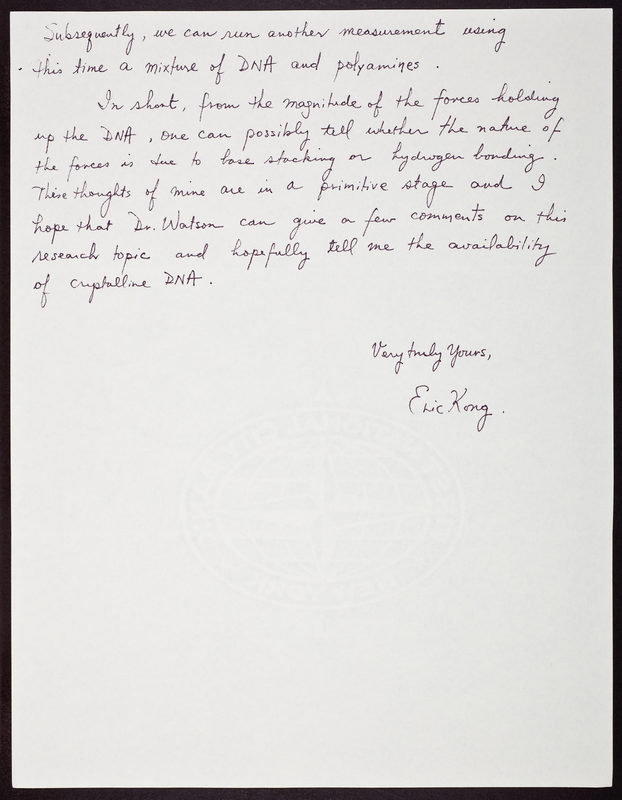 Subsequently, we can run another measurement using
this time a mixture of DNA and polyamines.
In short, from the magnitude of the forces holding
up the DNA, one can possibly tell whether the nature of
the forces is due to base stacking or hydrogen bonding.
These thoughts of mine are in a primitive stage and I
hope that Dr. Watson can give a few comments on this
research topic and hopefully tell me the availability
of cryptalline DNA.
Very truly Yours,
Eric Kong.